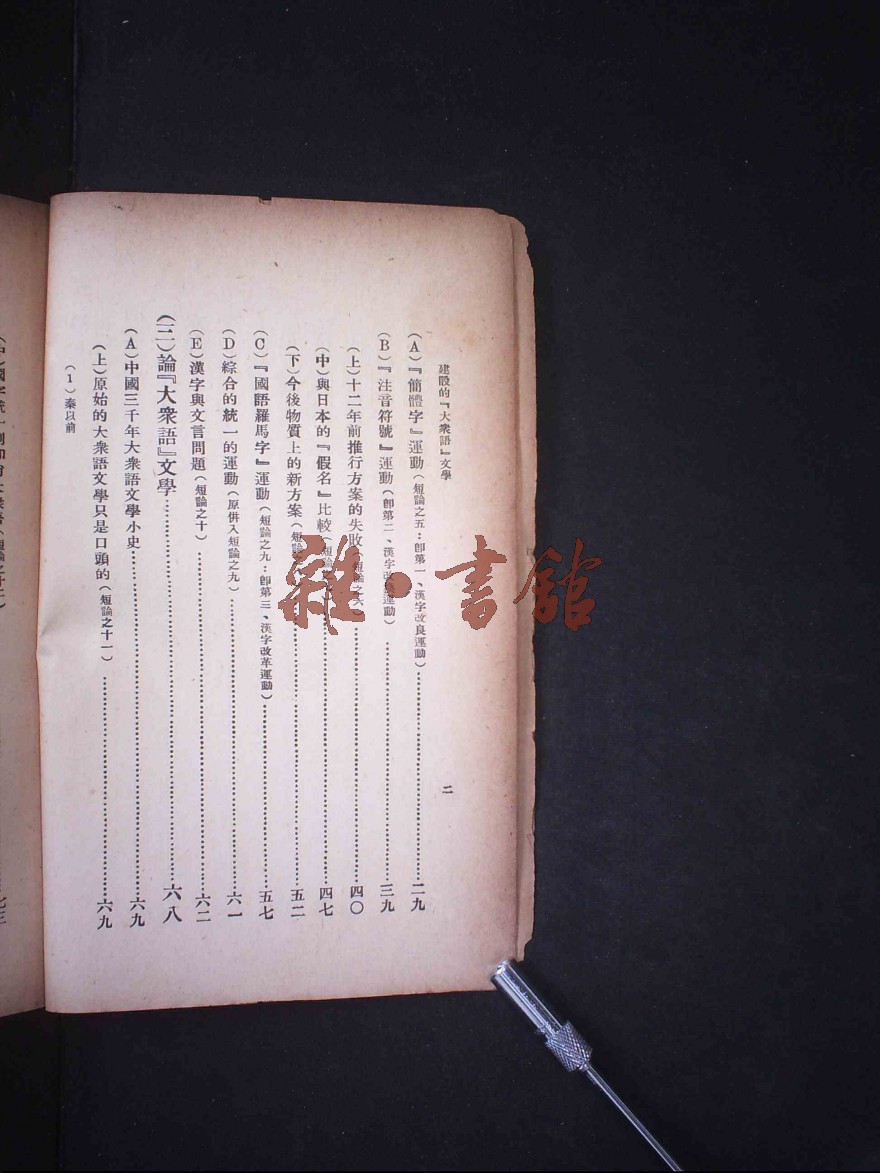 建設的『大衆語』文學
二
(A)『簡體字』運動(短論之五：卽第一、漢字改良運動)……二九
(B)『注音符號』運動(卽第二、漢字改良運動)……三九
(上)十二年前推行方案的失敗(短論之六)……四〇
(中)與日本的『假名』比較(短論之)……四七
(下)今後物質上的新方案(短論)……五二
(C)『國語羅馬字』運動(短論之九：卽第三、漢字改革運動)……五七
(D)綜合的統一的運動(原併入短論之九)……六一
(E)漢字與文言問題(短論之十)……六二
(三)論『大衆語』文學……六八
(A)中國三千年大衆語文學小史……六九
(上)原始的大衆語文學只是口頭的(短論之十一)……六九
(1)秦以前
雜·書館